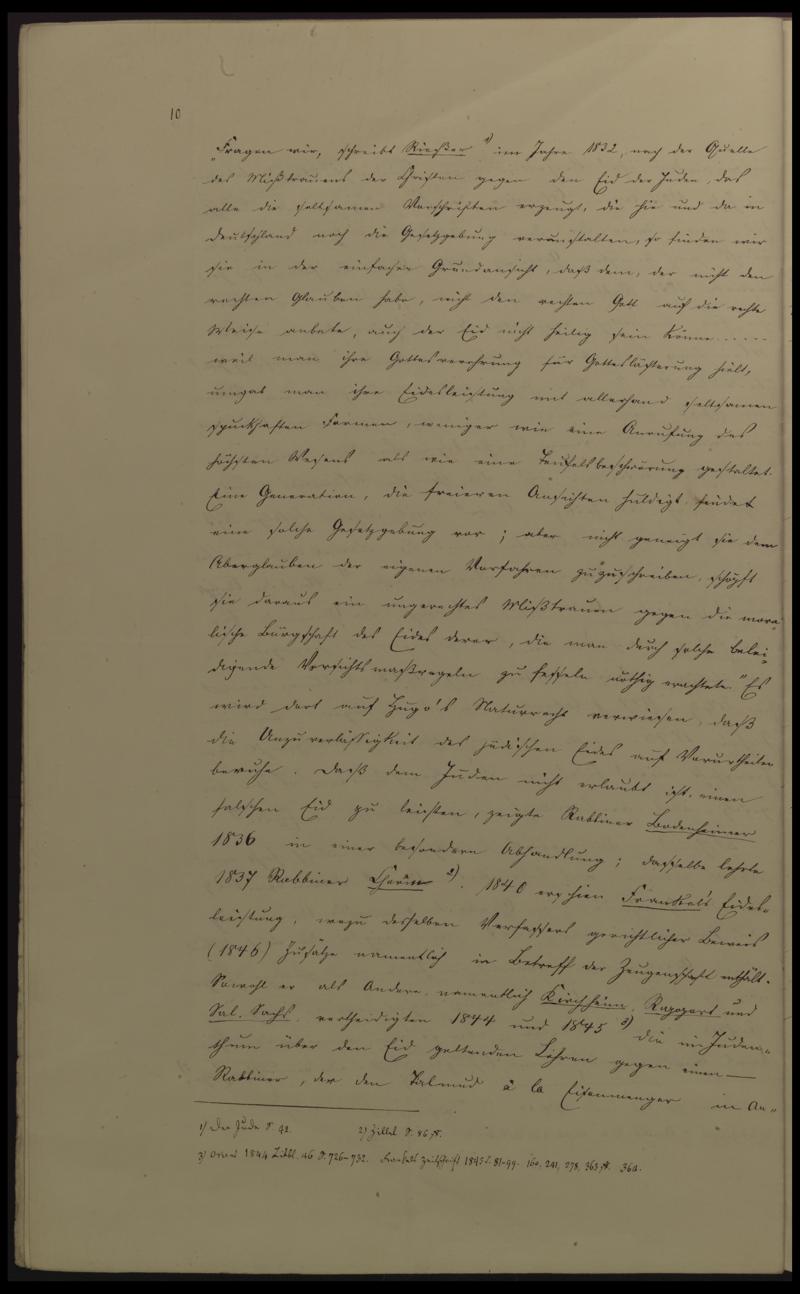 10
„Fragen wir, schreibt Rießer ¹) im Jahre 1832, nach der Quelle
des Mißtrauens der Christen gegen den Eid der Juden, das
alle die seltsamen Vorschriften erzeugt, die hie und da in
Deutschland noch die Gesetzgebung verunstalten, so finden wir
sie in der einfachen Grundansicht, daß dem, der nicht den
rechten Glauben habe, nicht den rechten Gott auf die rechte
Weise anbete, auch der Eid nicht heilig sein könne.....
weil man ihre Gottesverehrung für Gotteslästerung hielt,
umgab man ihre Eidesleistung mit allerhand seltsamen
spuckhaften Formen, weniger wie eine Anrufung des
höchsten Wesens als wie eine Teufelsbeschwörung gestaltet.
Eine Generation, die freieren Ansichten huldigt findet
eine solche Gesetzgebung vor; aber nicht geneigt sie dem
Aberglauben der eigenen Vorfahren zuzuschreiben, schöpft
sie daraus ein ungerechtes Mißtrauen gegen die mora-
lische Bürgschaft des Eides derer, die man durch solche belei-
digende Vorsichtsmaßregeln zu fesseln nöthig erachtete." Es
wird dort auf Hugo's Naturrecht verwiesen, daß
die Unzuverlässigkeit des jüdischen Eides auf Vorurtheilen
beruhe. Daß dem Juden nicht erlaubt ist einen
falschen Eid zu leisten, zeigte Rabbiner Bodenheimer
1836 in einer besondern Abhandlung; dasselbe lehrte
1837 Rabbiner ²). 1840 erschien Frankel's Eides-
leistung, wozu desselben Verfassers gerichtlicher Beweis
(1846) Zusätze namentlich in Betreff der Zeugenschaft enthält.
Sowohl er als Andere, namentlich Kirchheim, Rapoport und
Sal. Sachs, vertheidigten 1844 und 1845 ³) die im Juden-
thum über den Eid geltenden Lehren gegen einen —
Rabbiner, der den Talmud à la Eisenmenger in An-
1) Der Jude S. 42. 2) Zittel S. 86 ff.
3) Orient 1844 Litbl. 46 S. 726–732. Frankels Zeitschrift 1845 S. 81–99. 160, 241, 278, 363 ff. 360.